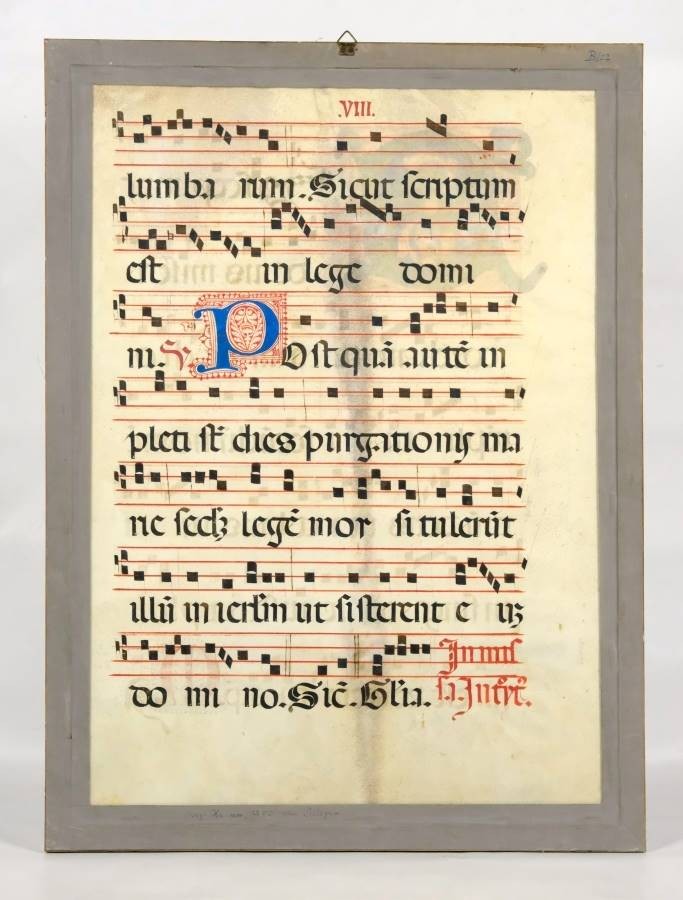 .VIII.
lumba rum. Sicut scriptum
est in lege domi
ni. ℣ POst quā autē in
pleti st̄ dies purgationis ma
rie secdꝫ legē moy si tulerūt
illū in ierłm ut sisterent e ūꝫ
do mi no. Sic̄. Glīa. In mis
sa. Int̄yt̄.